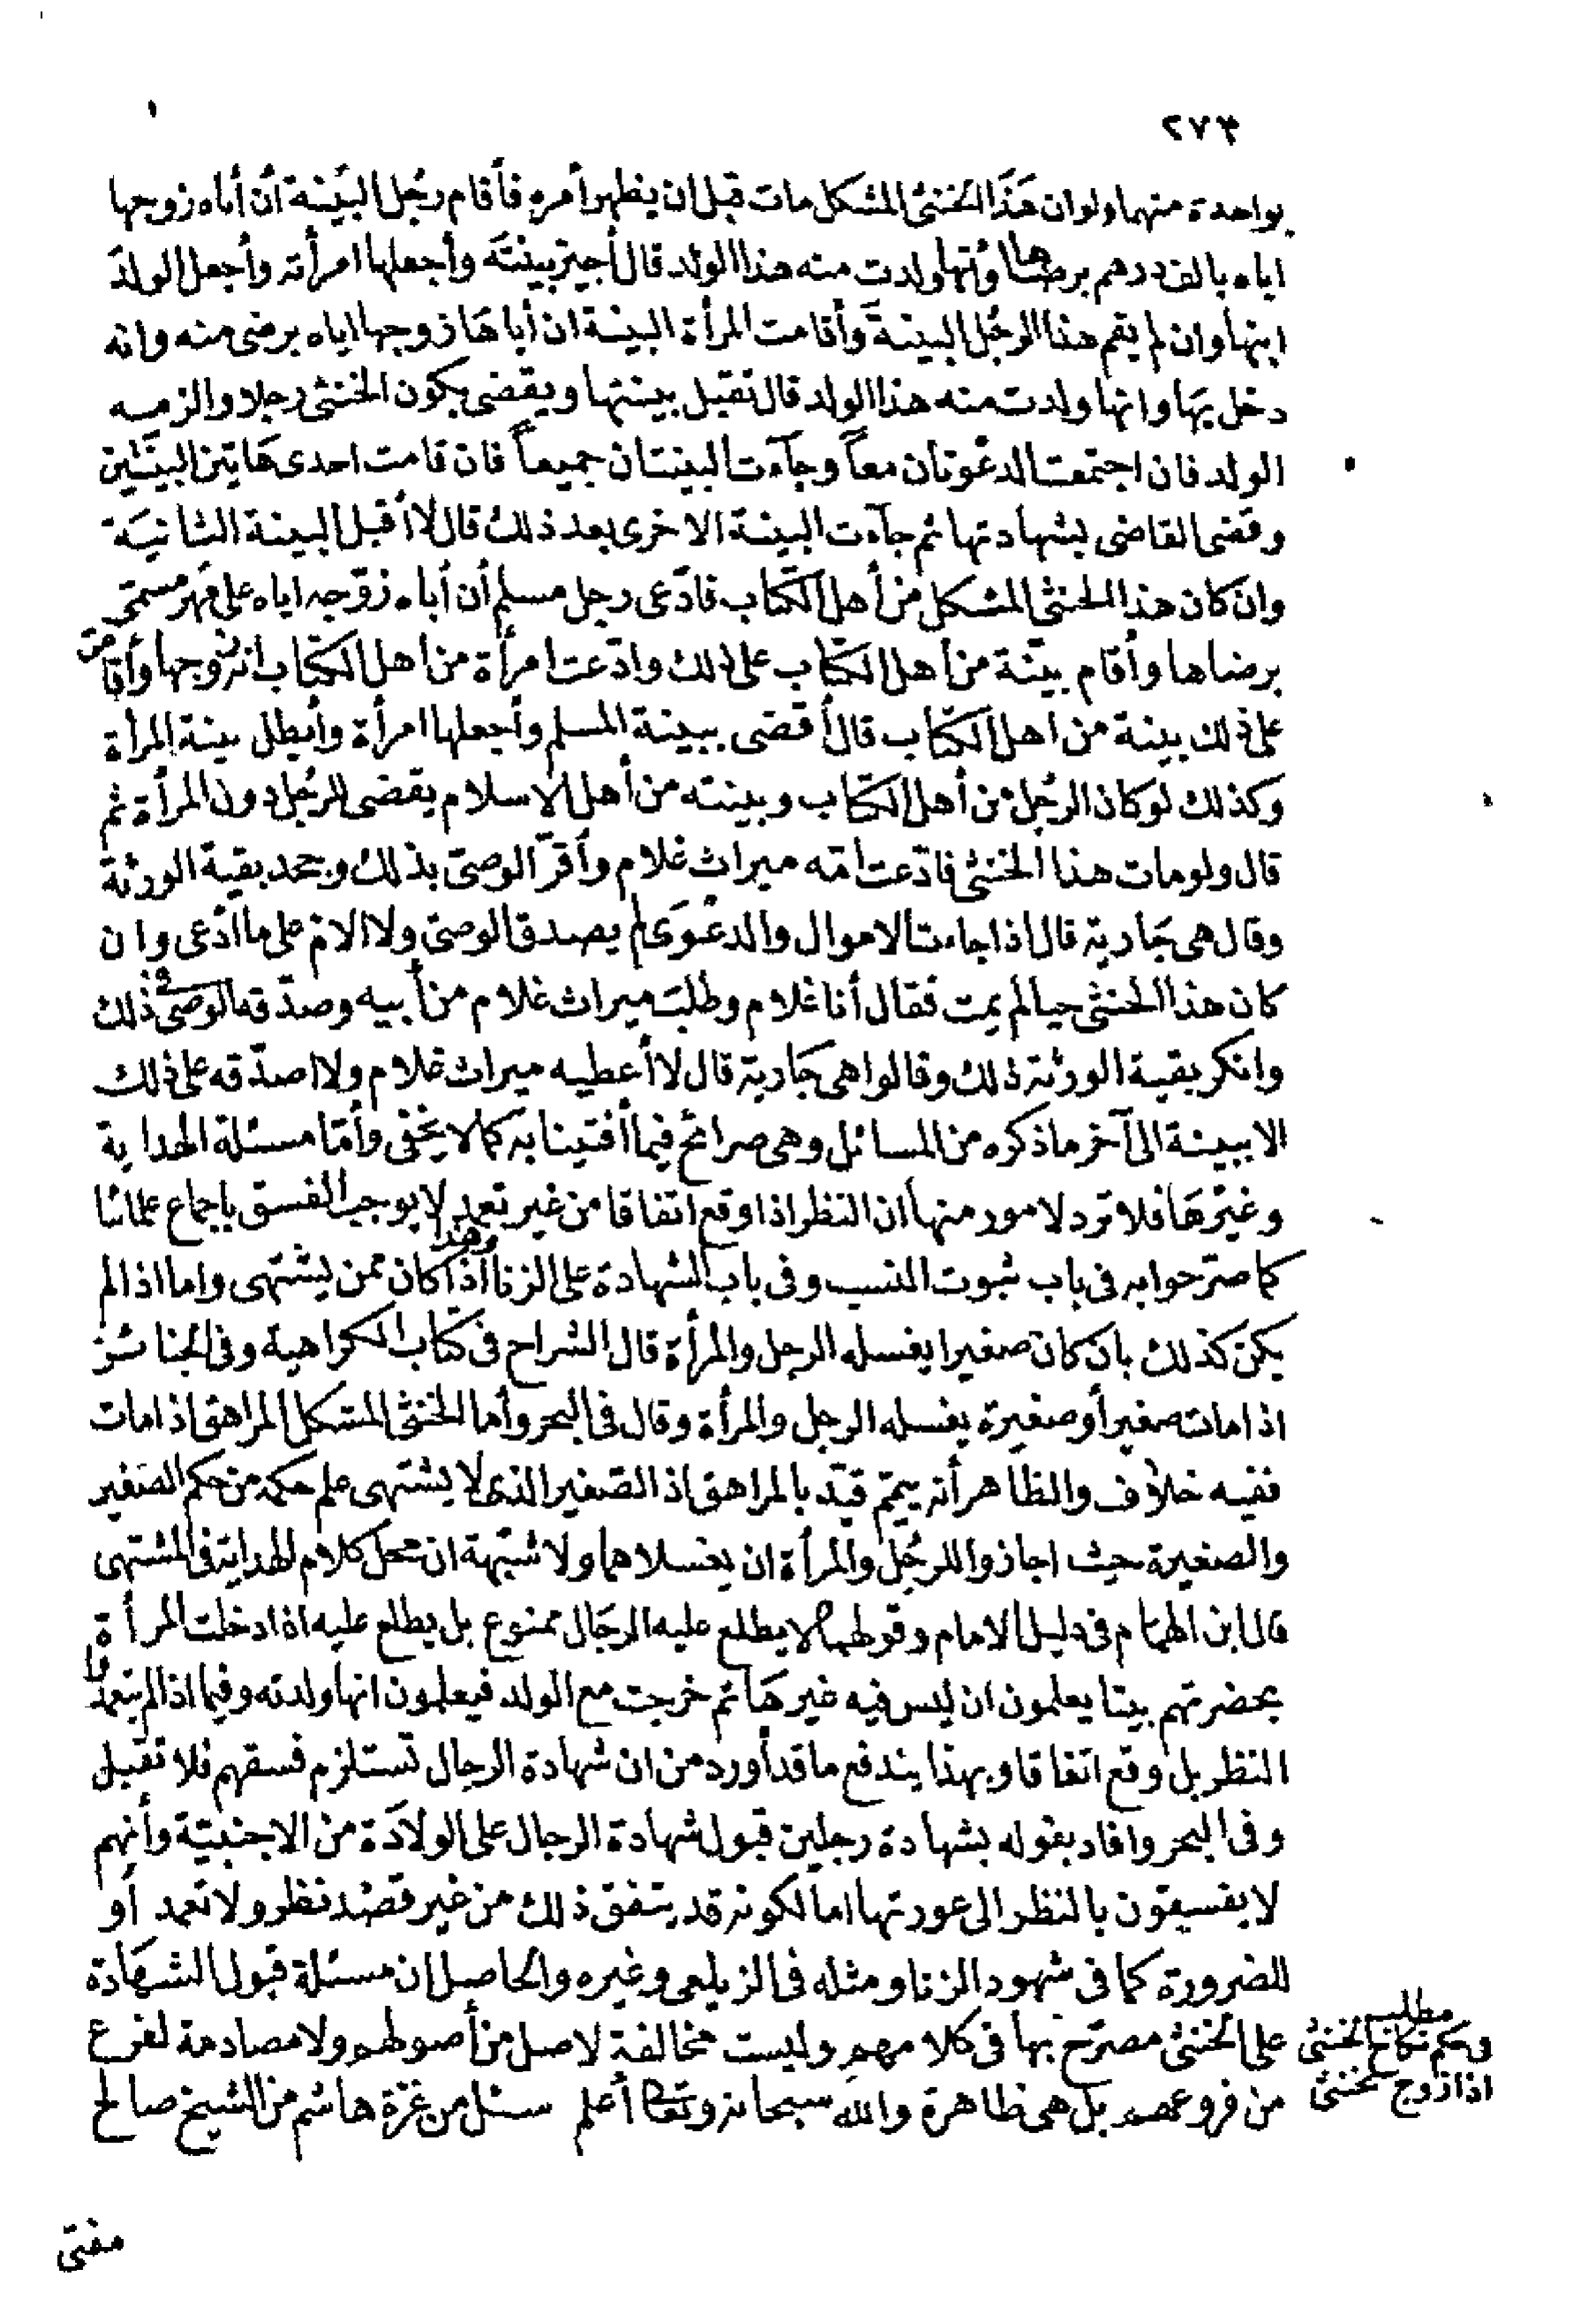 ٢٧٣
بواحدة منهما ولو ان هَذَا الخنثى المشكل مات قبل ان يظهر أمره فأقام رجُل البيّنة أن أباه زوجها
اياه بالف درهم برضاها وأنها ولدت منه هذا الولد قال أجيز بينته وأجعلها امرأته وأجعل الولد
ابنها وان لم يقم هذا الرجُل البينة وأقامت المرأة البينة ان أباهَا زوجها اياه برضى منه وانه
دخل بهَا وانها ولدت منه هذا الولد قال تقبل بينتها ويقضى بكون الخنثى رجلا والزمه
الولد فان اجتمعت الدعوتان معاً وجآءت البينتان جميعاً فان قامت احدى هَاتين البينتين
وقضى القاضى بشهادتها ثم جآءت البينة الاخرى بعد ذلك قال لا أقبل البينة الثانية
وان كان هذا الخنثى المشكل من أهل الكتاب فادّعى رجل مسلم أن أباه زوّجه اياه على مهر مسمى
برضاها وأقام بيّنة من أهل الكتاب على ذلك وادّعت امرأة من اهل الكتاب انه تزوجها وأقامت
على ذلك بينة من اهل الكتاب قال أقضى ببينة المسلم وأجعلها امرأة وأبطل بينة المرأة
وكذلك لو كان الرجُل من أهل الكتاب وبينته من أهل الاسلام يقضى للرجُل دون المرأة ثم
قال ولو مات هذا الخنثى فادّعت امّه ميراث غلام وأقرّ الوصى بذلك وجحد بقية الورثة
وقال هى جَارية قال اذا جاءت الاموال والدعْوَى لم يصدق الوصىّ ولا الام على ما ادّعى وان
كان هذا الخنثى حيا لم يمت فقال أنا غلام وطلب ميراث غلام من أبيه وصدّقه الوصى فى ذلك
وانكر بقية الورثة ذلك وقالوا هى جَارية قال لا أعطيه ميراث غلام ولا اصدّقه على ذلك
الا ببينة الى آخر ما ذكره من المسائل وهى صرائح فيما أفتينا به كما لا يخفى وأمّا مسئلة الهداية
وغيرهَا فلا ترد لامور منها ان النظر اذا وقع اتفاقا من غير تعمد لا يوجب الفسق باجماع علمائنا
كما صرّحوا به فى باب ثبوت النسب وفى باب الشهادة على الزنا وهذا اذا كان ممن يشتهى واما اذا لم
يكن كذلك بان كان صغيرا يغسله الرجل والمرأة قال الشراح فى كتاب الكراهية وفى الجنائز
اذا مات صغير أو صغيرة يغسله الرجل والمرأة وقال فى البحر وأما الخنثى المشكل المراهق اذا مات
ففيه خلاف والظاهر أنه ييمّم قيّد بالمراهق اذ الصّغير الذى لا يشتهى علم حكمه من حكم الصغير
والصغيرة حيث اجازوا للرجُل والمرأة ان يغسلاهما ولا شبّهة ان محل كلام الهداية فى المشتهى
قال ابن الهمام فى دليل الامام وقولهما لا يطلع عليه الرجَال ممنوع بل يطلع عليه اذا دخلت المرأة
بحضرتهم بيتا يعلمون ان ليس فيه غيرهَا ثم خرجت مع الولد فيعلمون انها ولدته وفيما اذا لم يتعمدوا
النظر بل وقع اتفاقا وبهذا يندفع ما قد أورد من ان شهادة الرجال تستلزم فسقهم فلا تقبل
وفى البحر وافاد بقوله بشهادة رجلين قبول شهادة الرجال على الولادَة من الاجنبيّة وأنهم
لا يفسقون بالنظر الى عورتها اما لكونه قد يتفق ذلك من غير قصْد نظر ولا تعمد أو
للضرورة كما فى شهود الزنا ومثله فى الزيلعى وغيره والحاصل ان مسئلة قبول الشهَادة
على الخنثى مصرّح بها فى كلامهم وليست مخالفة لاصل من أصولهم ولا مصادمة لفرع
من فروعهم بل هى ظاهرة والله سبحانه وتعالى أعلم سئل من غزة هاشم من الشيخ صالح
مطلب
فى حكم نكاح الخنثى
اذا زوج لخنثى
مفتى